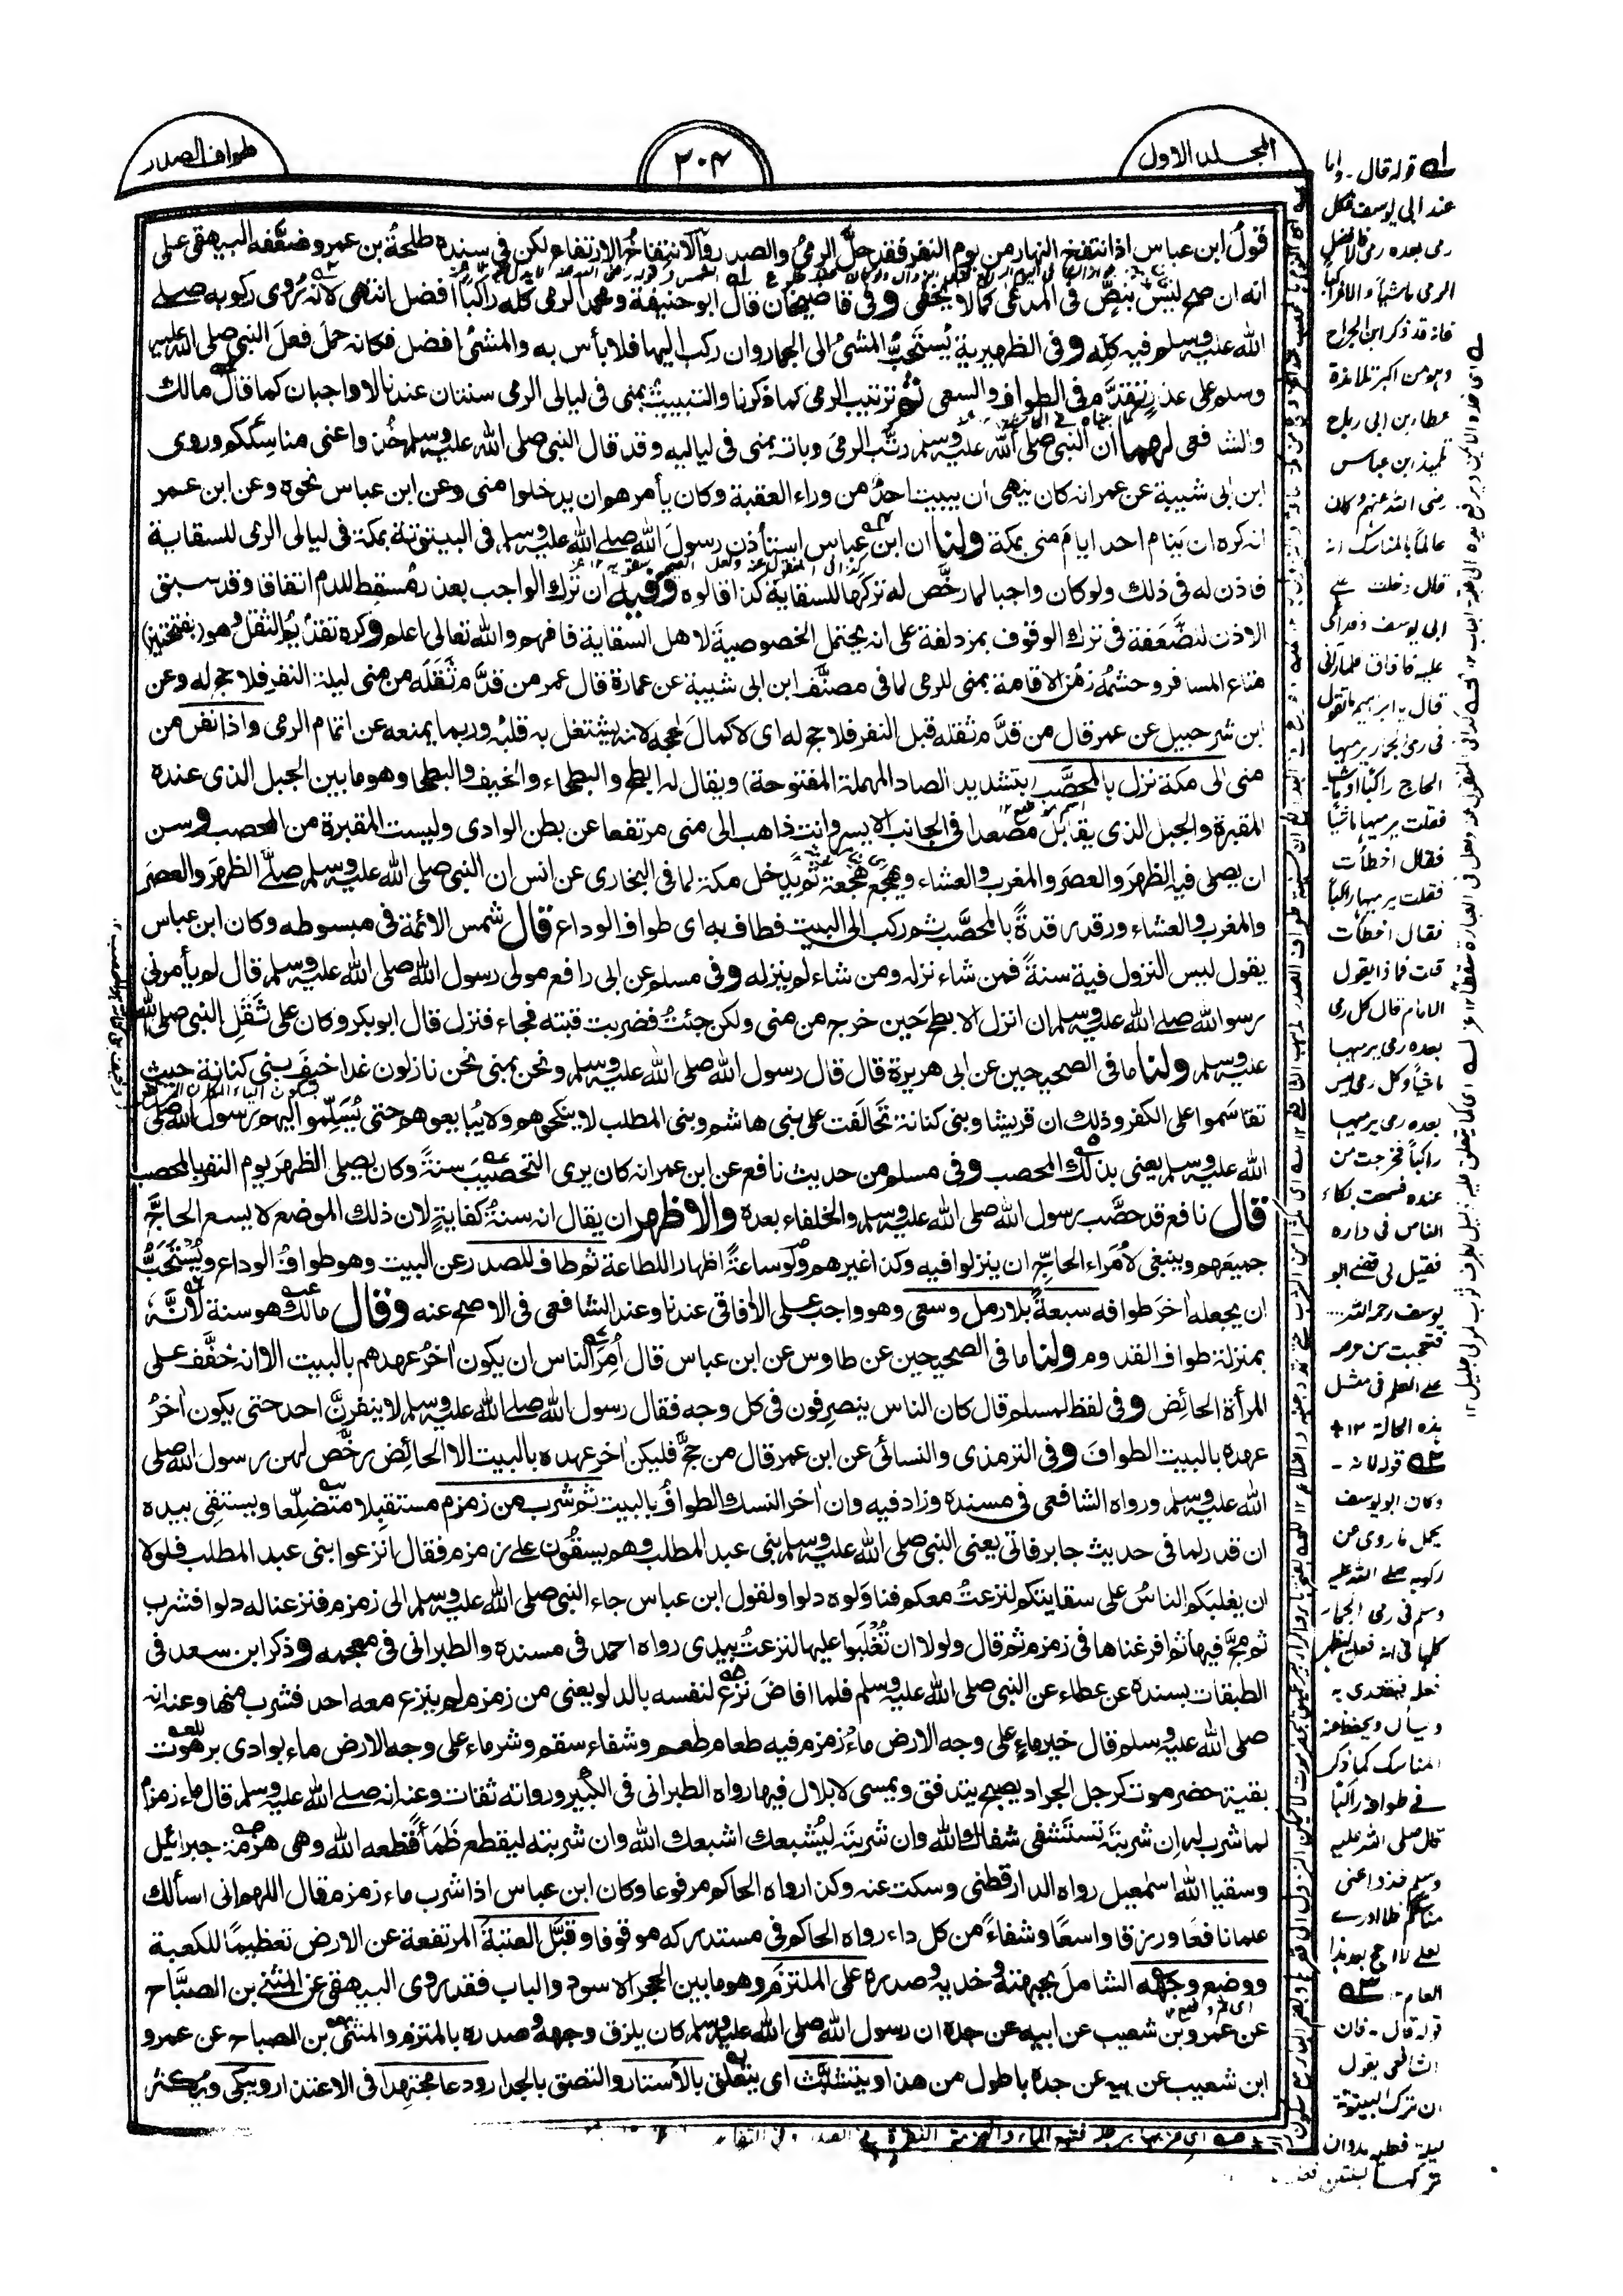 المجلد الاول
٣٠٤
طواف الصدر
قولُ ابن عباس اذا انتفخ النهار من يوم النفر فقد حلَّ الرميُ والصدر والانتفاخُ الارتفاع لكن فى سنده طلحةُ بن عمرو ضعَّفه البيهقى على
انه ان صح ليس بنصٍّ فى المدعى كما لا يخفى وفى قاضيخان قال ابو حنيفة ومحمد الرمى كله راكبًا افضل انتهى لانه رُوى ركوبه صلے
الله عليه وسلم فيه كلِّه وفى الظهيرية يُستَحبُّ المشىُ الى الجمار وان ركب اليها فلا بأس به والمشىُ افضل فكانه حمل فعلَ النبى صلى الله عليه
وسلم على عذرٍ تقدَّم فى الطواف والسعى ثم ترتيب الرمى كما ذكرنا والتبييتُ بمنى فى ليالى الرمى سنتان عندنا لا واجبان كما قال مالك
والشافعى لهما ان النبى صلى الله عليه وسلم رتَّب الرمىَ وبات بمنى فى لياليه وقد قال النبى صلى الله عليه وسلم خُذوا عنى مناسككم وروى
ابن ابى شيبة عن عمر انه كان ينهى ان يبيت احدٌ من وراء العقبة وكان يأمرهم ان يدخلوا منى وعن ابن عباس نحوه وعن ابن عمر
انه كره ان ينام احد ايامَ منى بمكة ولنا ان ابن عباس استأذن رسولَ الله صلے الله عليه وسلم فى البيتوتة بمكة فى ليالى الرمى للسقاية
فاذن له فى ذلك ولو كان واجبا لما رخَّص له تركَها للسقاية كذا قالوه وفيه ان ترك الواجب بعذر مُسقِط للدم اتفاقا وقد سبق
الاذن للضَّعَفة فى ترك الوقوف بمزدلفة على انه يحتمل الخصوصيةَ لاهل السقاية فافهم والله تعالى اعلم وكره تقديمُ الثقل وهو (بفتحتين)
متاع المسافر وحشمُه زمنَ الاقامة بمنى للرمى لما فى مصنَّف ابن ابى شيبة عن عمارة قال عمر من قدَّم ثَقَلَه من منى ليلة النفر فلا حج له وعن
ابن شرحبيل عن عمر قال من قدَّم ثقله قبل النفر فلا حج له اى لا كمالَ لحجه لانه يشتغل به قلبُه وربما يمنعه عن اتمام الرمى واذا نفر من
منى الى مكة نزل بالمحصَّب (بتشديد الصاد المهملة المفتوحة) ويقال له الابطح والبطحاء والخيف والبطحا وهو ما بين الجبل الذى عنده
المقبرة والجبل الذى يقابل مصعدا فى الجانب الايسر وانت ذاهب الى منى مرتفعا عن بطن الوادى وليست المقبرة من المحصب وسن
ان يصلى فيه الظهرَ والعصرَ والمغربَ والعشاء ويهجَع هَجعة ثم يدخل مكة لما فى البخارى عن انس ان النبى صلى الله عليه وسلم صلَّے الظهرَ والعصرَ
والمغرب والعشاء ورقد رقدةً بالمحصَّب ثم ركب الى البيت فطاف به اى طواف الوداع قال شمس الائمة فى مبسوطه وكان ابن عباس
يقول ليس النزول فيه سنةً فمن شاء نزله ومن شاء لم ينزله وفى مسلم عن ابى رافع مولى رسول الله صلى الله عليه وسلم قال لم يأمرنى
رسول الله صلے الله عليه وسلم ان انزل الابطح حين خرج من منى ولكن جئتُ فضربت قبته فجاء فنزل قال ابو بكر وكان على ثَقَلِ النبى صلى الله
عليه وسلم ولنا ما فى الصحيحين عن ابى هريرة قال قال رسول الله صلى الله عليه وسلم ونحن بمنى نحن نازلون غدا خيفَ بنى كنانة حيث
تقاسَموا على الكفر وذلك ان قريشا وبنى كنانة تحالَفت على بنى هاشم وبنى المطلب لا ينكحوهم ولا يُبايعوهم حتى يُسَلِّموا اليهم رسول الله صلى
الله عليه وسلم يعنى بذلك المحصب وفى مسلم من حديث نافع عن ابن عمر انه كان يرى التحصيبَ سنةً وكان يصلى الظهرَ يوم النفر بالمحصب
قال نافع قد حصَّب رسول الله صلى الله عليه وسلم والخلفاء بعده والاظهر ان يقال انه سنةُ كفايةٍ لان ذلك الموضع لا يسع الحاجَّ
جميعَهم وينبغى لأمَراء الحاجِّ ان ينزلوا فيه وكذا غيرهم ولو ساعةً اظهارا للطاعة ثم طاف للصدر عن البيت وهو طوافُ الوداع ويُستَحبُّ
ان يجعله اٰخرَ طوافه سبعةً بلا رمل وسعى وهو واجب على الاٰفاقى عندنا وعند الشافعى فى الاصح عنه وقال مالك هو سنة لأنَّه
بمنزلة طواف القدوم ولنا ما فى الصحيحين عن طاوس عن ابن عباس قال أُمِرَ الناس ان يكون اٰخرُ عهدهم بالبيت الا انه خفَّف على
المرأة الحائض وفى لفظ لمسلم قال كان الناس ينصرفون فى كل وجه فقال رسول الله صلے الله عليه وسلم لا ينفرنَّ احد حتى يكون اٰخرُ
عهده بالبيت الطوافَ وفى الترمذى والنسائى عن ابن عمر قال من حجَّ فليكن اٰخر عهده بالبيت الا الحائض رخَّص لهن رسول الله صلى
الله عليه وسلم ورواه الشافعى فى مسنده وزاد فيه وان اٰخر النسك الطوافُ بالبيت ثم شرب من زمزم مستقبلا متضلِّعا ويستقى بيده
ان قدر لما فى حديث جابر فاتى يعنى النبى صلى الله عليه وسلم بنى عبد المطلب وهم يسقُون على زمزم فقال انزعوا بنى عبد المطلب فلولا
ان يغلبَكم الناسُ على سقايتكم لنزعتُ معكم فناوَلوه دلوا ولقول ابن عباس جاء النبى صلى الله عليه وسلم الى زمزم فنزعنا له دلوا فشرب
ثم مجَّ فيها ثم افرغناها فى زمزم ثم قال ولولا ان تُغلَبوا عليها لنزعتُ بيدى رواه احمد فى مسنده والطبرانى فى معجمه وذكر ابن سعد فى
الطبقات بسنده عن عطاء عن النبى صلى الله عليه وسلم فلما افاضَ نزَع لنفسه بالدلو يعنى من زمزم لم ينزع معه احد فشرب منها وعنه انه
صلى الله عليه وسلم قال خير ماءٍ على وجه الارض ماءُ زمزم فيه طعام طعم وشفاء سقم وشر ماء على وجه الارض ماء بوادى برهوت
بقية حضرموت كرجل الجراد يصبح يتدفق ويمسى لا بلال فيها رواه الطبرانى فى الكبير ورواته ثقات وعنه انه صلے الله عليه وسلم قال ماء زمزم
لما شرب له ان شربتَه تستَشفى شفاك الله وان شربتَه ليُشبعك اشبعك الله وان شربته ليقطع ظَمَأً قطعه الله وهى هَزمة جبرائيل
وسقيا الله اسمعيل رواه الدارقطنى وسكت عنه وكذا رواه الحاكم مرفوعا وكان ابن عباس اذا شرب ماء زمزم قال اللهم انى اسألك
علما نافعًا ورزقا واسعًا وشفاءً من كل داء رواه الحاكم فى مستدركه موقوفا وقبَّل العتبةَ المرتفعة عن الارض تعظيمًا للكعبة
ووضع وجهَه الشاملَ جبهتَه وخديه وصدره على الملتزم وهو ما بين الحجر الاسود والباب فقد روى البيهقى عن المثنى بن الصبَّاح
عن عمرو بن شعيب عن ابيه عن جده ان رسول الله صلى الله عليه وسلم كان يلزق وجهه وصدره بالملتزم والمثنى بن الصباح عن عمرو
ابن شعيب عن ابيه عن جده باطول من هذا ويتشبَّث اى يتعلق بالأستار والتصق بالجدار ودعا مجتهدا فى الاعتذار ويبكى ويكثر
قوله قال - واما
عند ابى يوسف فكل
رمى بعده رمى فالافضل
الرمى ماشيا والا فراكبا
فانه قد ذكر ابن الجراح
وهو من اكبر تلامذة
عطاء بن ابى رباح
تلميذ ابن عباس
رضى الله عنهم وكان
عالما بالمناسك انه
قال دخلت على
ابى يوسف
قال يا ابراهيم ما تقول
فى رمى الجمار يرميها
الحاج راكبا او ماشيا
فقلت يرميها ماشيا
فقال اخطأت
فقلت يرميها راكبا
فقال اخطأت
قلت فماذا يقول
الامام قال كل رمى
بعده رمى يرميها
ماشيا وكل رمى ليس
بعده رمى يرميها
راكبا فخرجت من
عنده فسمعت بكاء
الناس فى داره
فقيل لى قضى ابو
يوسف رحمه الله
فتعجبت من حرصه
على العلم فى مثل
هذه الحالة ١٢
قوله لانه -
وكان ابو يوسف
يحمل ما روى من
ركوبه صلے الله عليه
وسلم فى رمى الجمار
كلها على انه فعل ليظهر
فعله فيقتدى به
ويسأل ويحفظ عنه
المناسك كما ذكر
فى طوافه راكبا
قال صلى الله عليه
وسلم خذوا عنى
مناسككم فلا ادرى
لعلى لا احج بعد هذا
العام
قوله قال - فان
الشافعى يقول
ان ترك البيتوتة
ليلة فعليه مد وان